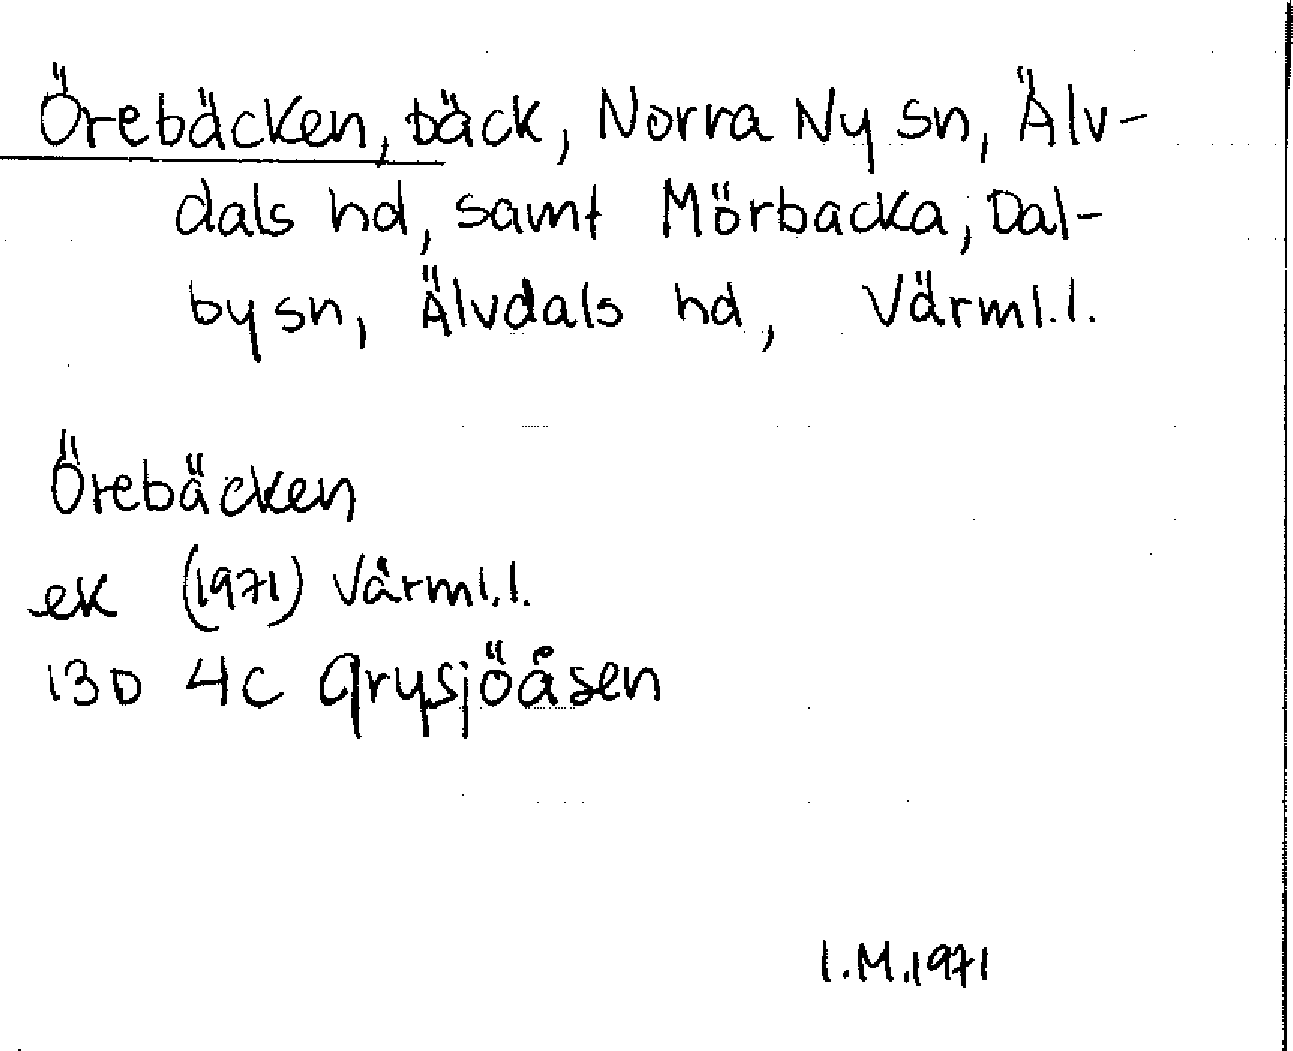 Örebäcken, bäck, Norra Ny sn, Älv-
dals hd, samt Mörbacka, Dal-
by sn, Älvdals hd, Värml.l.
Örebäcken
ek (1971) Värml.l.
13D 4C Grysjöåsen
I.M.1971